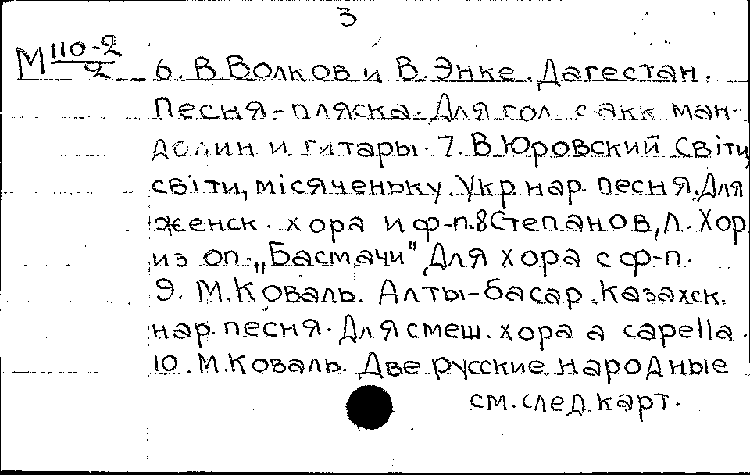 3
М 110-2/2
6. В Волков и В. Энке. Дагестан.
Песня-пляска. Для гол. с акк ман-
долин и гитары. 7. В Юровский Світи,
світи, місяченьку. Укр нар. песня. Для
женск. хора и ф-п. 8 Степанов, Л. Хор
из оп. „Басмачи" Для хора с ф-п.
9. М. Коваль. Алты-басар. Казахск.
нар. песня. Для смеш. хора a capella.
10. М. Коваль. Две русские народные
см. след. карт.